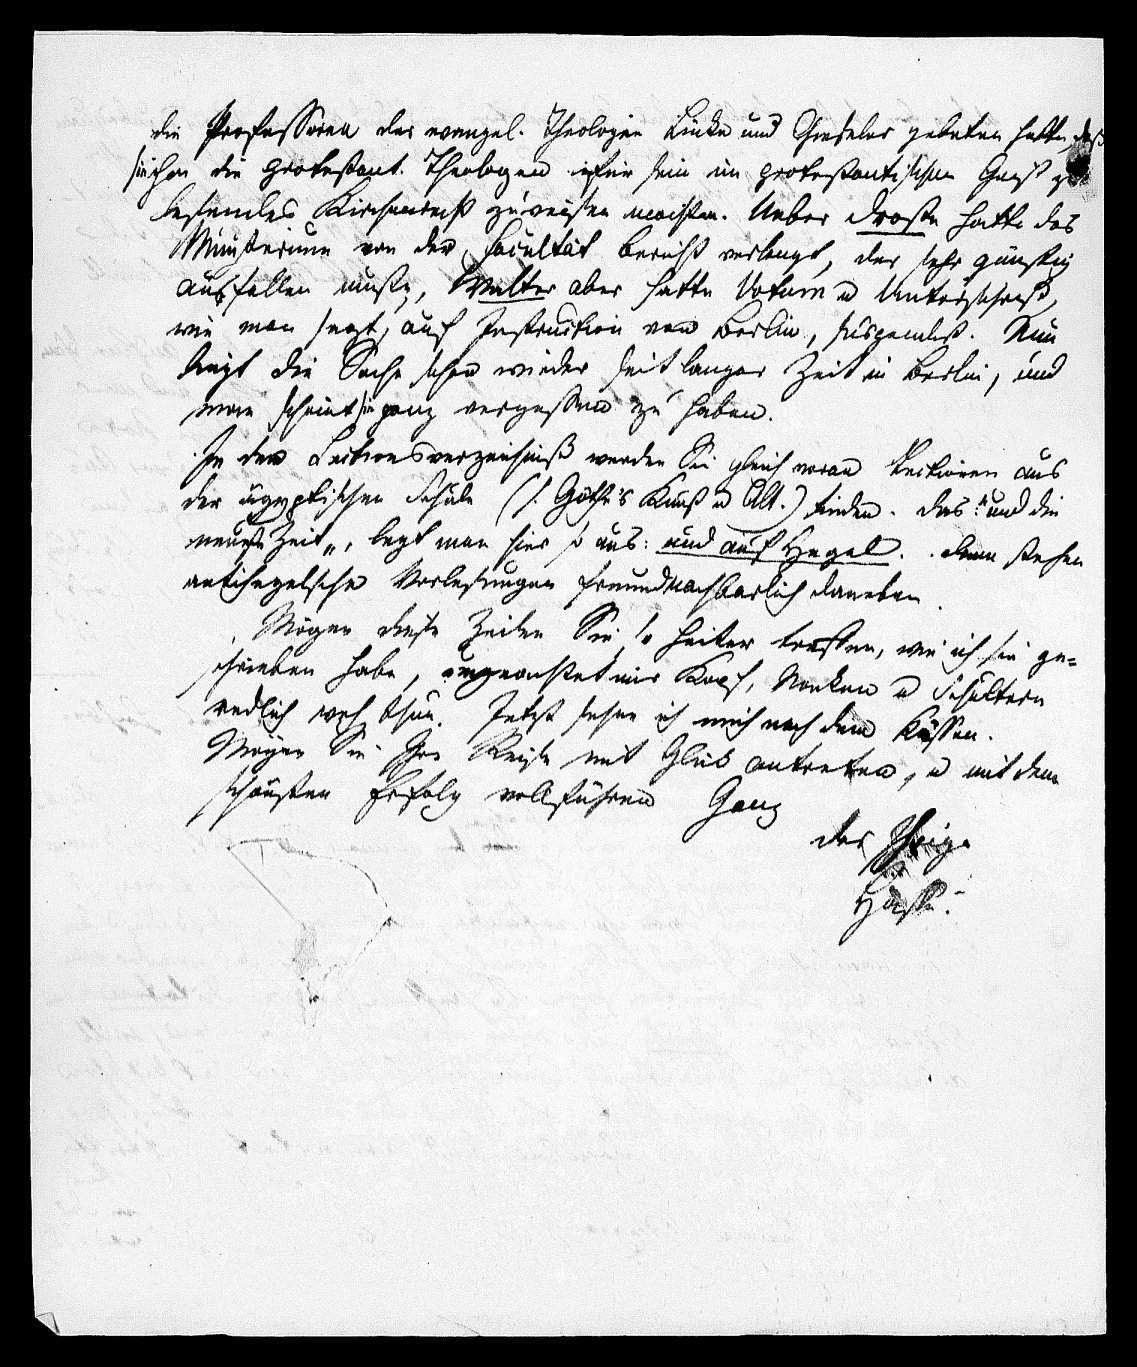 die Professoren der evangel. Theologie Lücke und Gieseler gebeten hatten, daß
sie ihm die protestant. Theologen für sein im protestantischen Geist zu
lesendes Kirchenrecht zuweisen möchten. Ueber Droste hatte das
Ministerium von der Facultät Bericht verlangt, der sehr günstig
ausfallen mußte, Walter aber hatte Votum u Unterschrift,
wie man sagt, auf Instruction von Berlin, suspendirt. Nun
liegt die Sache schon wieder seit langer Zeit in Berlin, und
man scheint sie ganz vergessen zu haben.
In dem Lectionsverzeichniß werden Sie gleich voran Lectionen aus
der ägyptischen Schule (s. Göthe's Kunst u Alt.) finden. Das: "und die
neueste Zeit", legt man hier so aus: und auf Hegel. Denn stehen
antihegelsche Vorlesungen freundnachbarlich daneben.
Mögen diese Zeilen Sie so heiter treffen, wie ich sie ge=
schrieben habe, ungeachtet mir Kopf, Nacken u Schultern
redlich weh thun. Jetzt sehne ich mich nach dem Kissen.
Mögen Sie Ihre Reise mit Glück antreten, u mit dem
schönsten Erfolg vollführen Ganz
der Ihrige